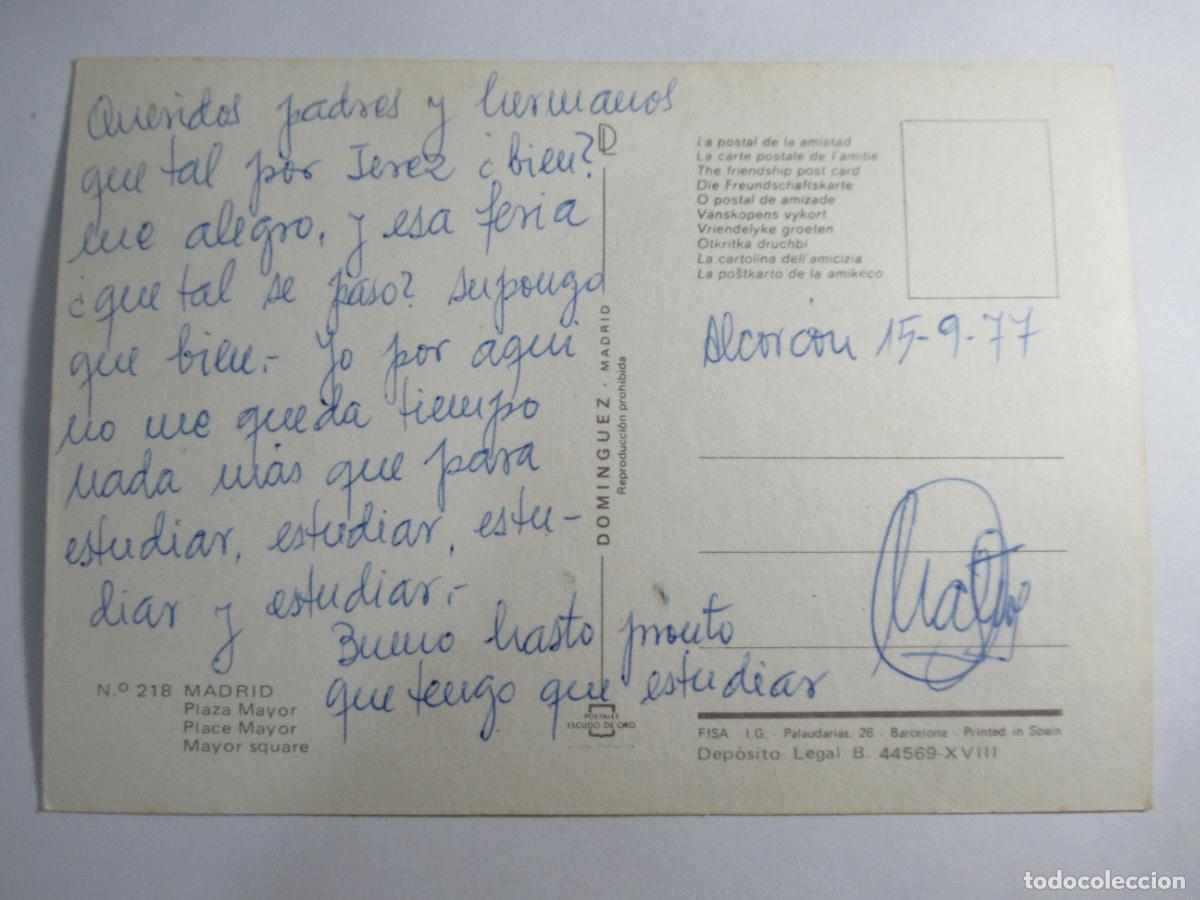 Queridos padres y hermanos
que tal por Jerez ¿bien?
me alegro, y esa feria
¿que tal se paso? supongo
que bien.- Yo por aqui
no me queda tiempo
nada más que para
estudiar, estudiar, estu-
diar y estudiar.-
Bueno hasta pronto
que tengo que estudiar
N.º 218 MADRID
Plaza Mayor
Place Mayor
Mayor square
DOMINGUEZ - MADRID
Reproducción prohibida
POSTALES
ESCUDO DE ORO
La postal de la amistad
La carte postale de l'amitié
The friendship post card
Die Freundschaftskarte
O postal de amizade
Vanskopens vykort
Vriendelyke groeten
Otkritka druchbi
La cartolina dell'amicizia
La poŝtkarto de la amikeco
Alcorcón 15-9-77
FISA - I.G. - Palaudarias, 26 - Barcelona - Printed in Spain
Depósito Legal B. 44569-XVIII
todocoleccion